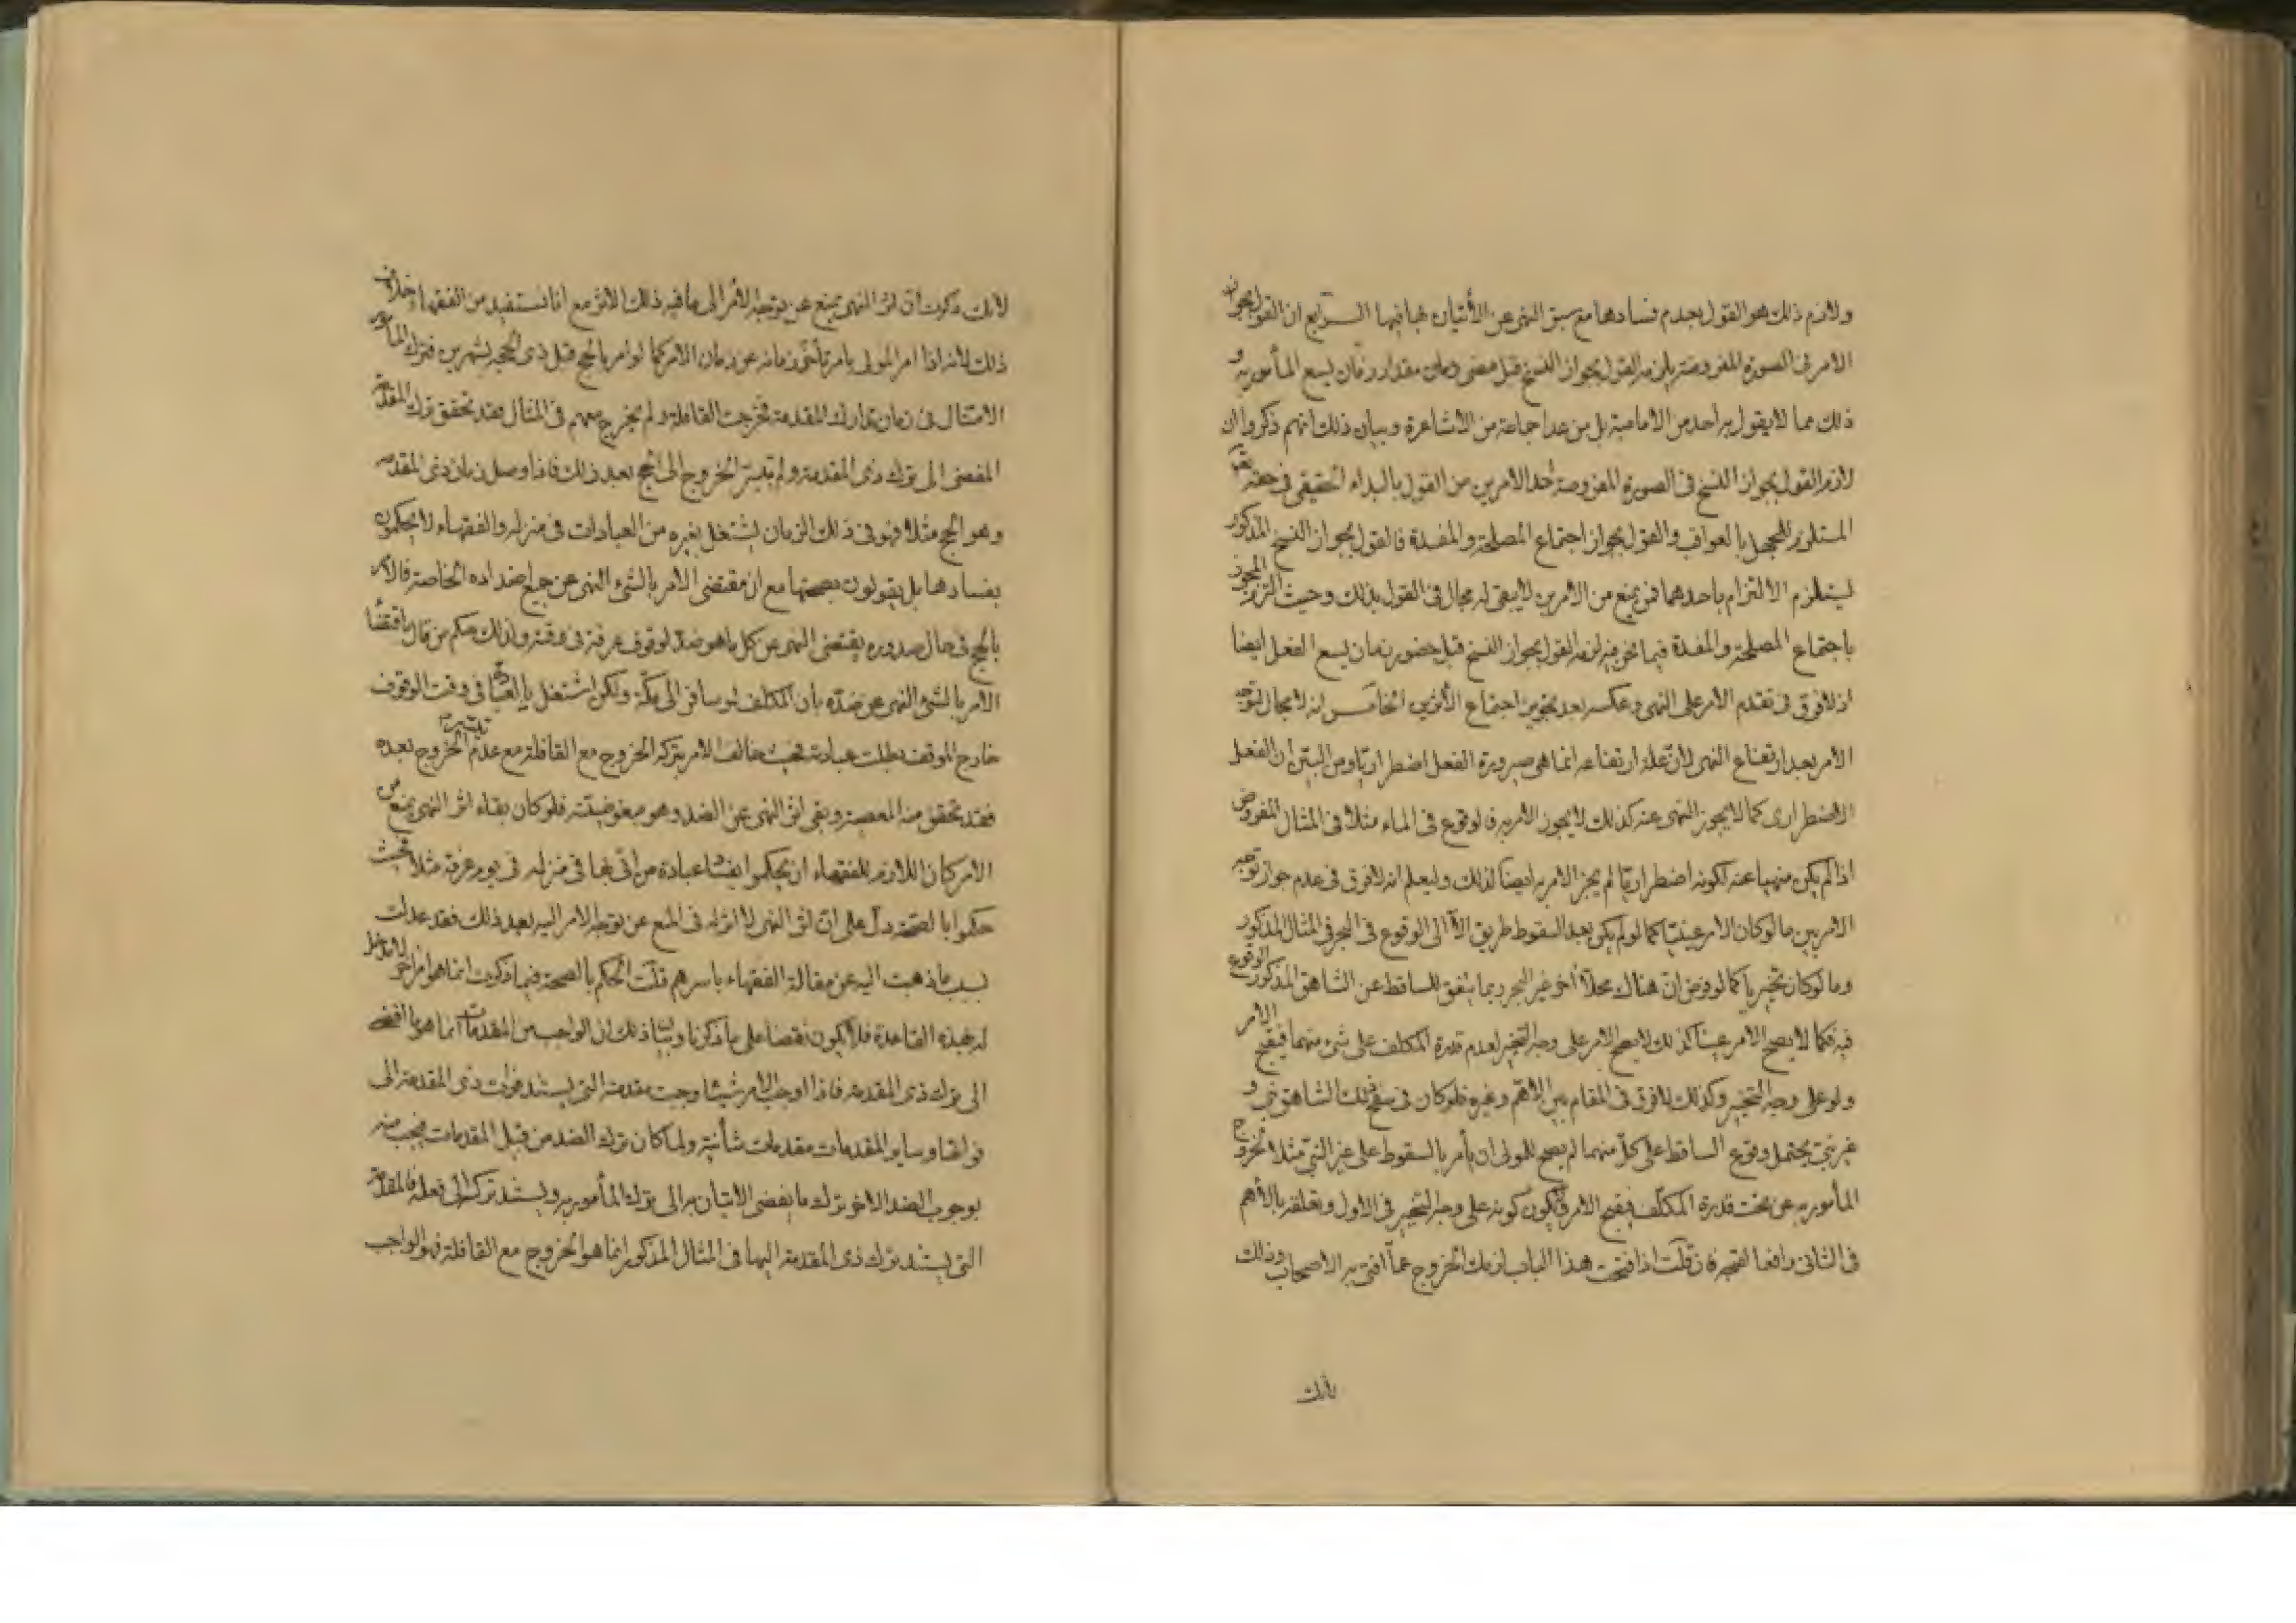 ولازم ذلك هو القول بعدم فسادها مع سبق النهى عن الأتيان بما فيها الرابع ان القول بجواز
الامر فى الصورة المفروضة يلزمه القول بجواز النسخ قبل مضى مقدار زمان يسع المأمور به و
ذلك مما لا يقول به احد من الامامية بل من عدا جماعة من الاشاعرة وبيان ذلك انهم ذكروا ان
لازم القول بجواز النسخ فى الصورة المفروضة أحد الامرين من القول بالبداء الحقيقى فى حقه تعالى
المستلزم للجهل بالعواقب والقول بجواز اجتماع المصلحة والمفسدة فالقول بجواز النسخ المذكور
يستلزم الالتزام باحدهما فمن يمنع من الامرين لا يبقى له مجال فى القول بذلك وحيث التزم المجوز
باجتماع المصلحة والمفسدة فيما نحن فيه لزمه القول بجواز النسخ قبل حضور زمان يسع الفعل ايضا
اذ لا فرق فى تقدم الامر على النهى وعكسه بعد تجويز اجتماع الأثرين الخامس انه لا مجال لتوجه
الأمر بعد ارتفاع النهى لأن علة ارتفاعه انما هى صيرورة الفعل اضطراريا ومن البين أن الفعل
الاضطرارى كما لا يجوز النهى عنه كذلك لا يجوز الامر به فالوقوع فى الماء مثلا فى المثال المفروض
اذا لم يكن منهيا عنه لكونه اضطراريا لم يجز الامر به ايضا لذلك وليعلم انه لا فرق فى عدم جواز توجه
الامر بين ما لو كان الامر عينيا كما لو لم يكن بعد السقوط طريق الا الى الوقوع فى البحر فى المثال المذكور
وما لو كان تخييريا كما لو فرض ان هناك محلا أخر غير البحر ربما يتفق للساقط عن الشاهق المذكور الوقوع
فيه فكما لا يصح الامر عينا كذلك لا يصح الامر على وجه التخيير لعدم قدرة المكلف على شئ منهما فيقبح الامر
ولو على وجه التخيير وكذلك لا فرق فى المقام بين الاهم وغيره فلو كان فى سفح ذلك الشاهق نبى و
غير نبى يحتمل وقوع الساقط على كل منهما لم يصح للمولى ان يأمر بالسقوط على غير النبى مثلا لخروج
المأمور به عن تحت قدرة المكلف فيقبح الامر ولا يكون كونه على وجه التخيير فى الاول وتعلقه بالأهم
فى الثانى رافعا لقبحه فان قلت اذا فتحت هذا الباب لزمك الخروج عما افتى به الاصحاب وذلك
لأنك
لأنك ذكرت ان اثر النهى يمنع عن توجه الأمر الى ما فيه ذلك الاثر مع انا نستفيد من الفقهاء خلاف
ذلك لأنه اذا امر المولى بامر تأخر زمانه عن زمان الامر كما لو امر بالحج قبل ذى الحجة بشهرين فترك المأمور
الامتثال فى زمان تدارك المقدمة فخرجت القافلة ولم يخرج معهم فى المثال فقد تحقق ترك المقدمة
المفضى الى ترك ذى المقدمة ولم يتيسر الخروج الى الحج بعد ذلك فاذا وصل زمان ذى المقدمة
وهو الحج مثلا فهو فى ذلك الزمان يشتغل بغيره من العبادات فى منزله والفقهاء لا يحكمون
بفسادها بل يقولون بصحتها مع ان مقتضى الامر بالشئ النهى عن جميع اضداده الخاصة فالامر
بالحج فى حال صدوره يقتضى النهى عن كل ما هو ضد لوقوف عرفة فى وقته ولذلك حكم من قال باقتضاء
الامر بالشئ النهى عن ضده بأن المكلف لو سافر الى مكة ولكن اشتغل بالعبادة فى وقت الوقوف
خارج الموقف بطلت عبادته فحيث خالف الامر بتركه الخروج مع القافلة مع عدم تيسر الخروج بعده
فقد تحقق منه المعصية وبقى اثر النهى عن الضد وهو مبغوضيته فلو كان بقاء اثر النهى يمنع من
الامر كان اللازم للفقهاء ان يحكموا بفساد عبادة من اتى بها فى منزله فى يوم عرفة مثلا فحيث
حكموا بالصحة دل على ان اثر النهى لا اثر له فى المنع عن توجه الامر اليه بعد ذلك فقد عدلت
بسبب ما ذهبت اليه عن مقالة الفقهاء باسرهم قلت الحكم بالصحة فيما ذكرت انما هو امر اخر لا دخل
له بهذه القاعدة فلا يكون نقضا على ما ذكرنا وبيان ذلك ان الواجب من المقدمات انما هو ما افضى
الى ترك ذى المقدمة فاذا اوجب الأمر شيئا وجبت مقدمته التى يستند فوات ذى المقدمة الى
فواتها وساير المقدمات مقدمات شأنية ولما كان ترك الضد من قبيل المقدمات فيجب منه
بوجوب الضد الاخر ترك ما يفضى الاتيان به الى ترك المأمور به ويستند تركه الى فعله فالمقدمة
التى يستند ترك ذى المقدمة اليها فى المثال المذكور انما هو الخروج مع القافلة فهو الواجب